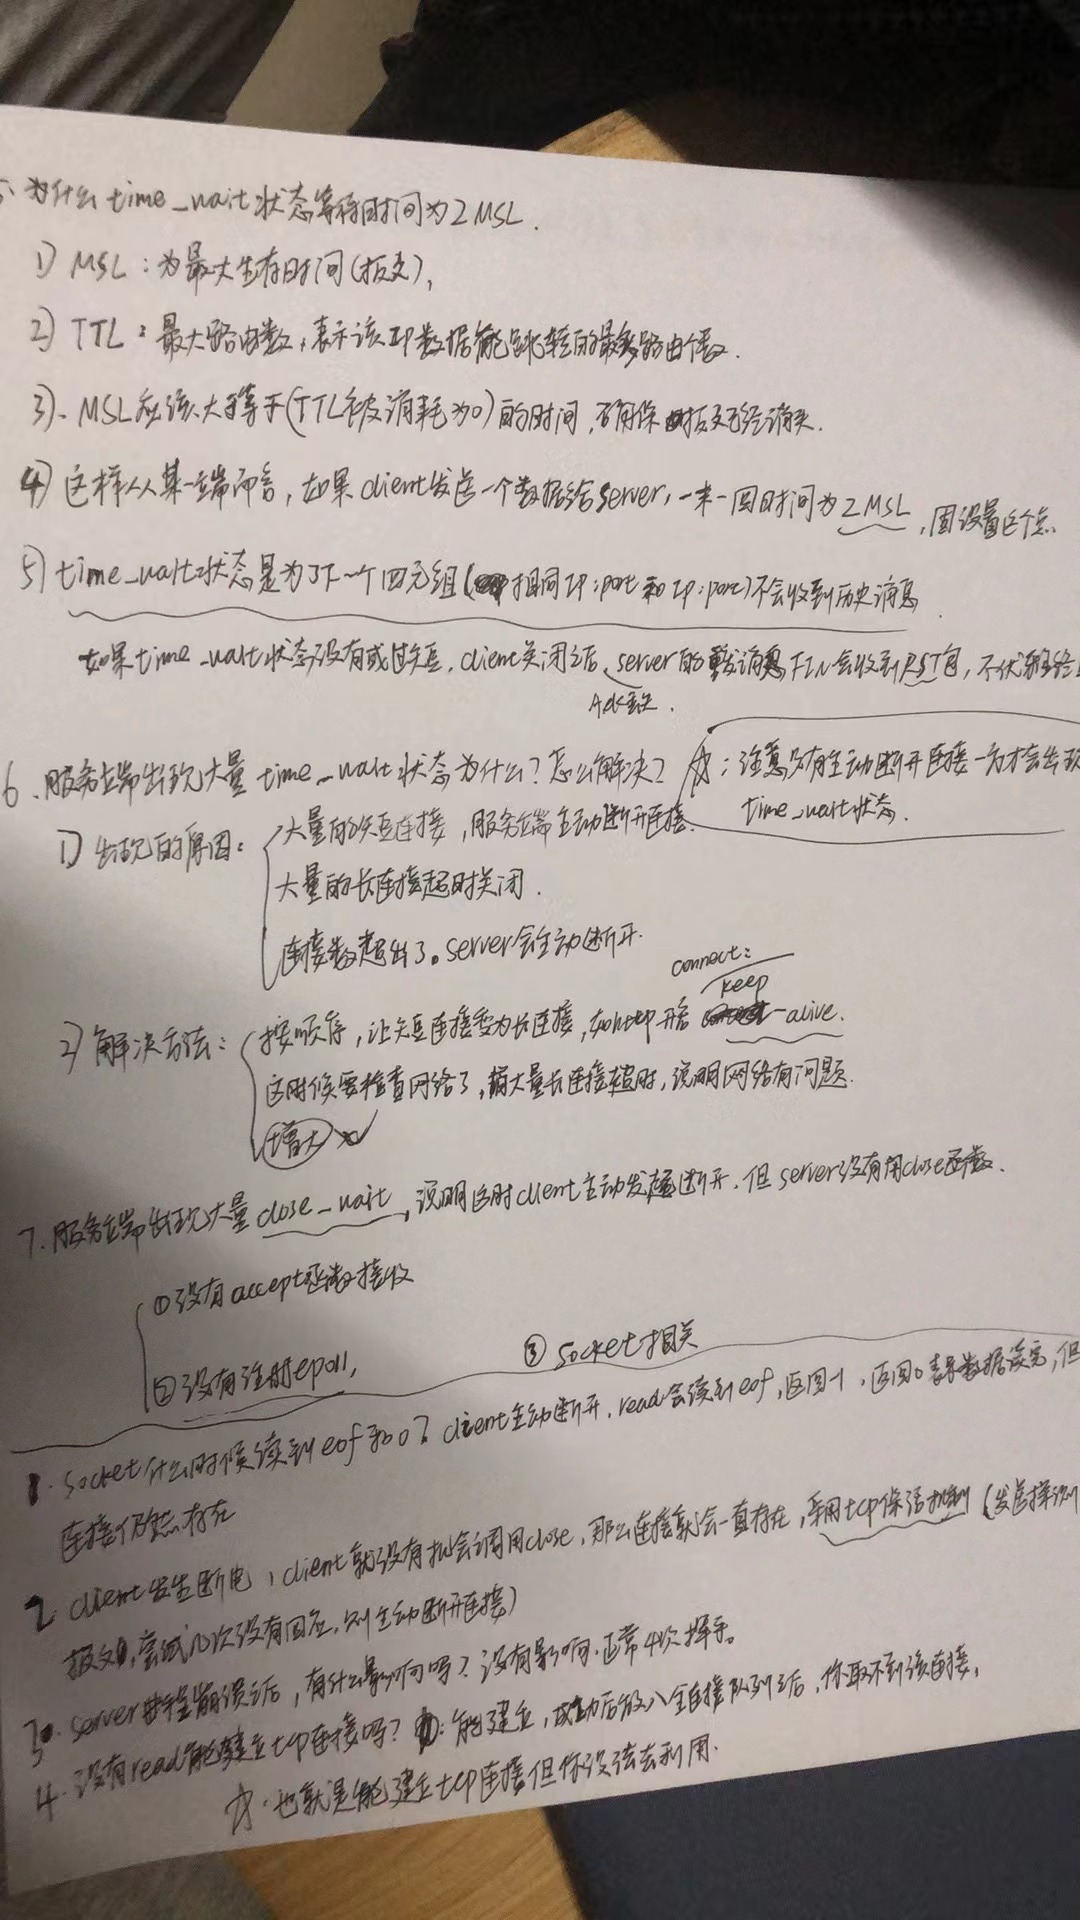 5、为什么time_wait状态等待时间为2MSL.
1) MSL：为最大生存时间(报文),
2) TTL：最大路由数,表示该IP数据能跳转的最多路由个数.
3)、MSL应该大于等于(TTL被消耗为0)的时间,确保报文已经消失.
4) 这样从某一端而言,如果client发送一个数据给server,一来一回时间为2MSL,固设置这个点.
5) time_wait状态是为了下一个四元组(相同IP:port和IP:port)不会收到历史消息
如果time_wait状态没有或过短,client关闭之后,server的重发消息FIN会收到RST包,不优雅
Ack丢失.
6、服务端出现大量time_wait状态为什么?怎么解决? ☆：注意只有主动断开连接一方才会出现
time_wait状态.
1) 出现的原因： 大量的短连接,服务端主动断开连接.
大量的长连接超时关闭.
连接数超出了。server会主动断开.
connect:
keep
2) 解决方法： 按顺序,让短连接变为长连接,如http开启 -alive.
这时候要检查网络了,大量长连接超时,说明网络有问题.
增大
7.服务端出现大量close_wait,说明这时client主动发起断开,但server没有用close函数.
①没有accept函数接收
②没有注册epoll,
③ socket相关
1.socket什么时候读到eof和0? client主动断开,read会读到eof,返回-1,返回0表示数据读完,但
连接仍然存在
2.client发生断电,client就没有机会调用close,那么连接就会一直存在,采用tcp保活机制(发送探测
报文,尝试几次没有回应,则主动断开连接)
3.server进程崩溃之后,有什么影响吗?没有影响.正常4次挥手。
4.没有read能建立tcp连接吗? 能建立,成功后放入全连接队列之后,你取不到该连接,
☆.也就是能建立tcp连接但你没法去利用.